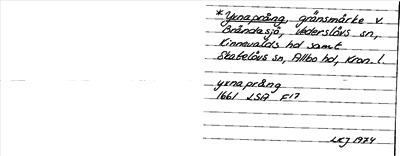 * Yxnaprång, gränsmärke v.
Brändasjö, Väderslövs sn,
Kinnevalds hd samt
Skatelövs sn, Allbo hd, Kron. l.
yxnaprång
1661 LSA F17
LKJ 1974